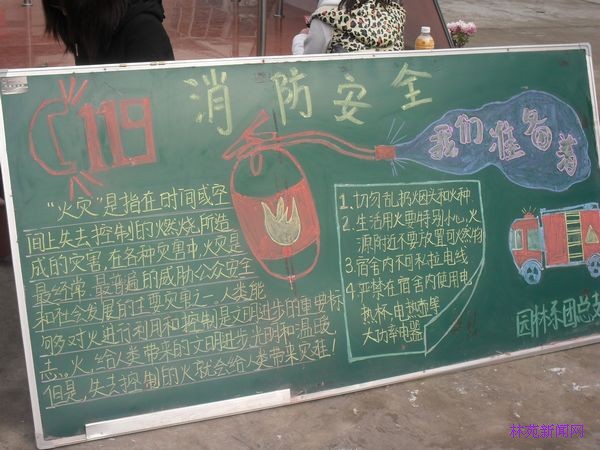 119
消防安全
我们准备着
“火灾”是指在时间或空
间上失去控制的燃烧所造
成的灾害,在各种灾害中,火灾是
最经常、最普遍的威胁公众安全
和社会发展的主要灾害之一。人类能
够对火进行利用和控制是文明进步的重要标
志。火,给人类带来的文明进步光明和温暖。
但是,失去控制的火就会给人类带来灾难!
1.切勿乱扔烟头和火种.
2.生活用火要特别小心,火
源附近不要放置可燃物
3.宿舍内不和私拉电线
4.严禁在宿舍内使用电
热杯、电热壶等
大功率电器
园林系团总支
林苑新闻网